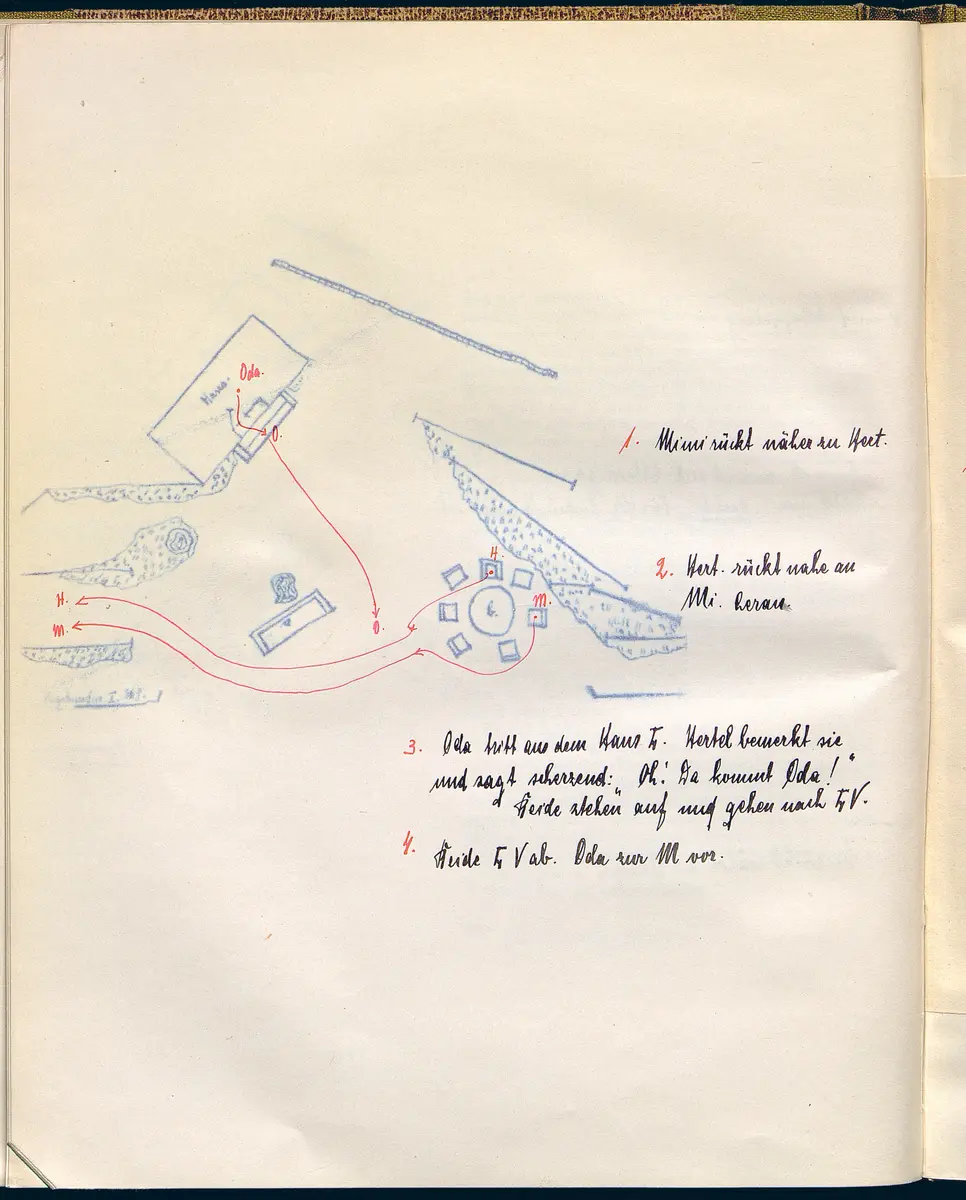 Oda.
Haus.
O.
1. Mimi rückt näher zu Hert.
H.
2. Hert. rückt nahe an
Mi. heran.
H.
M.
M.
O.
3. Oda tritt aus dem Haus L. Hertel bemerkt sie
und sagt scherzend: „Oh! Da kommt Oda!"
Beide stehen auf und gehen nach L V.
4. Beide L V ab. Oda zur M vor.